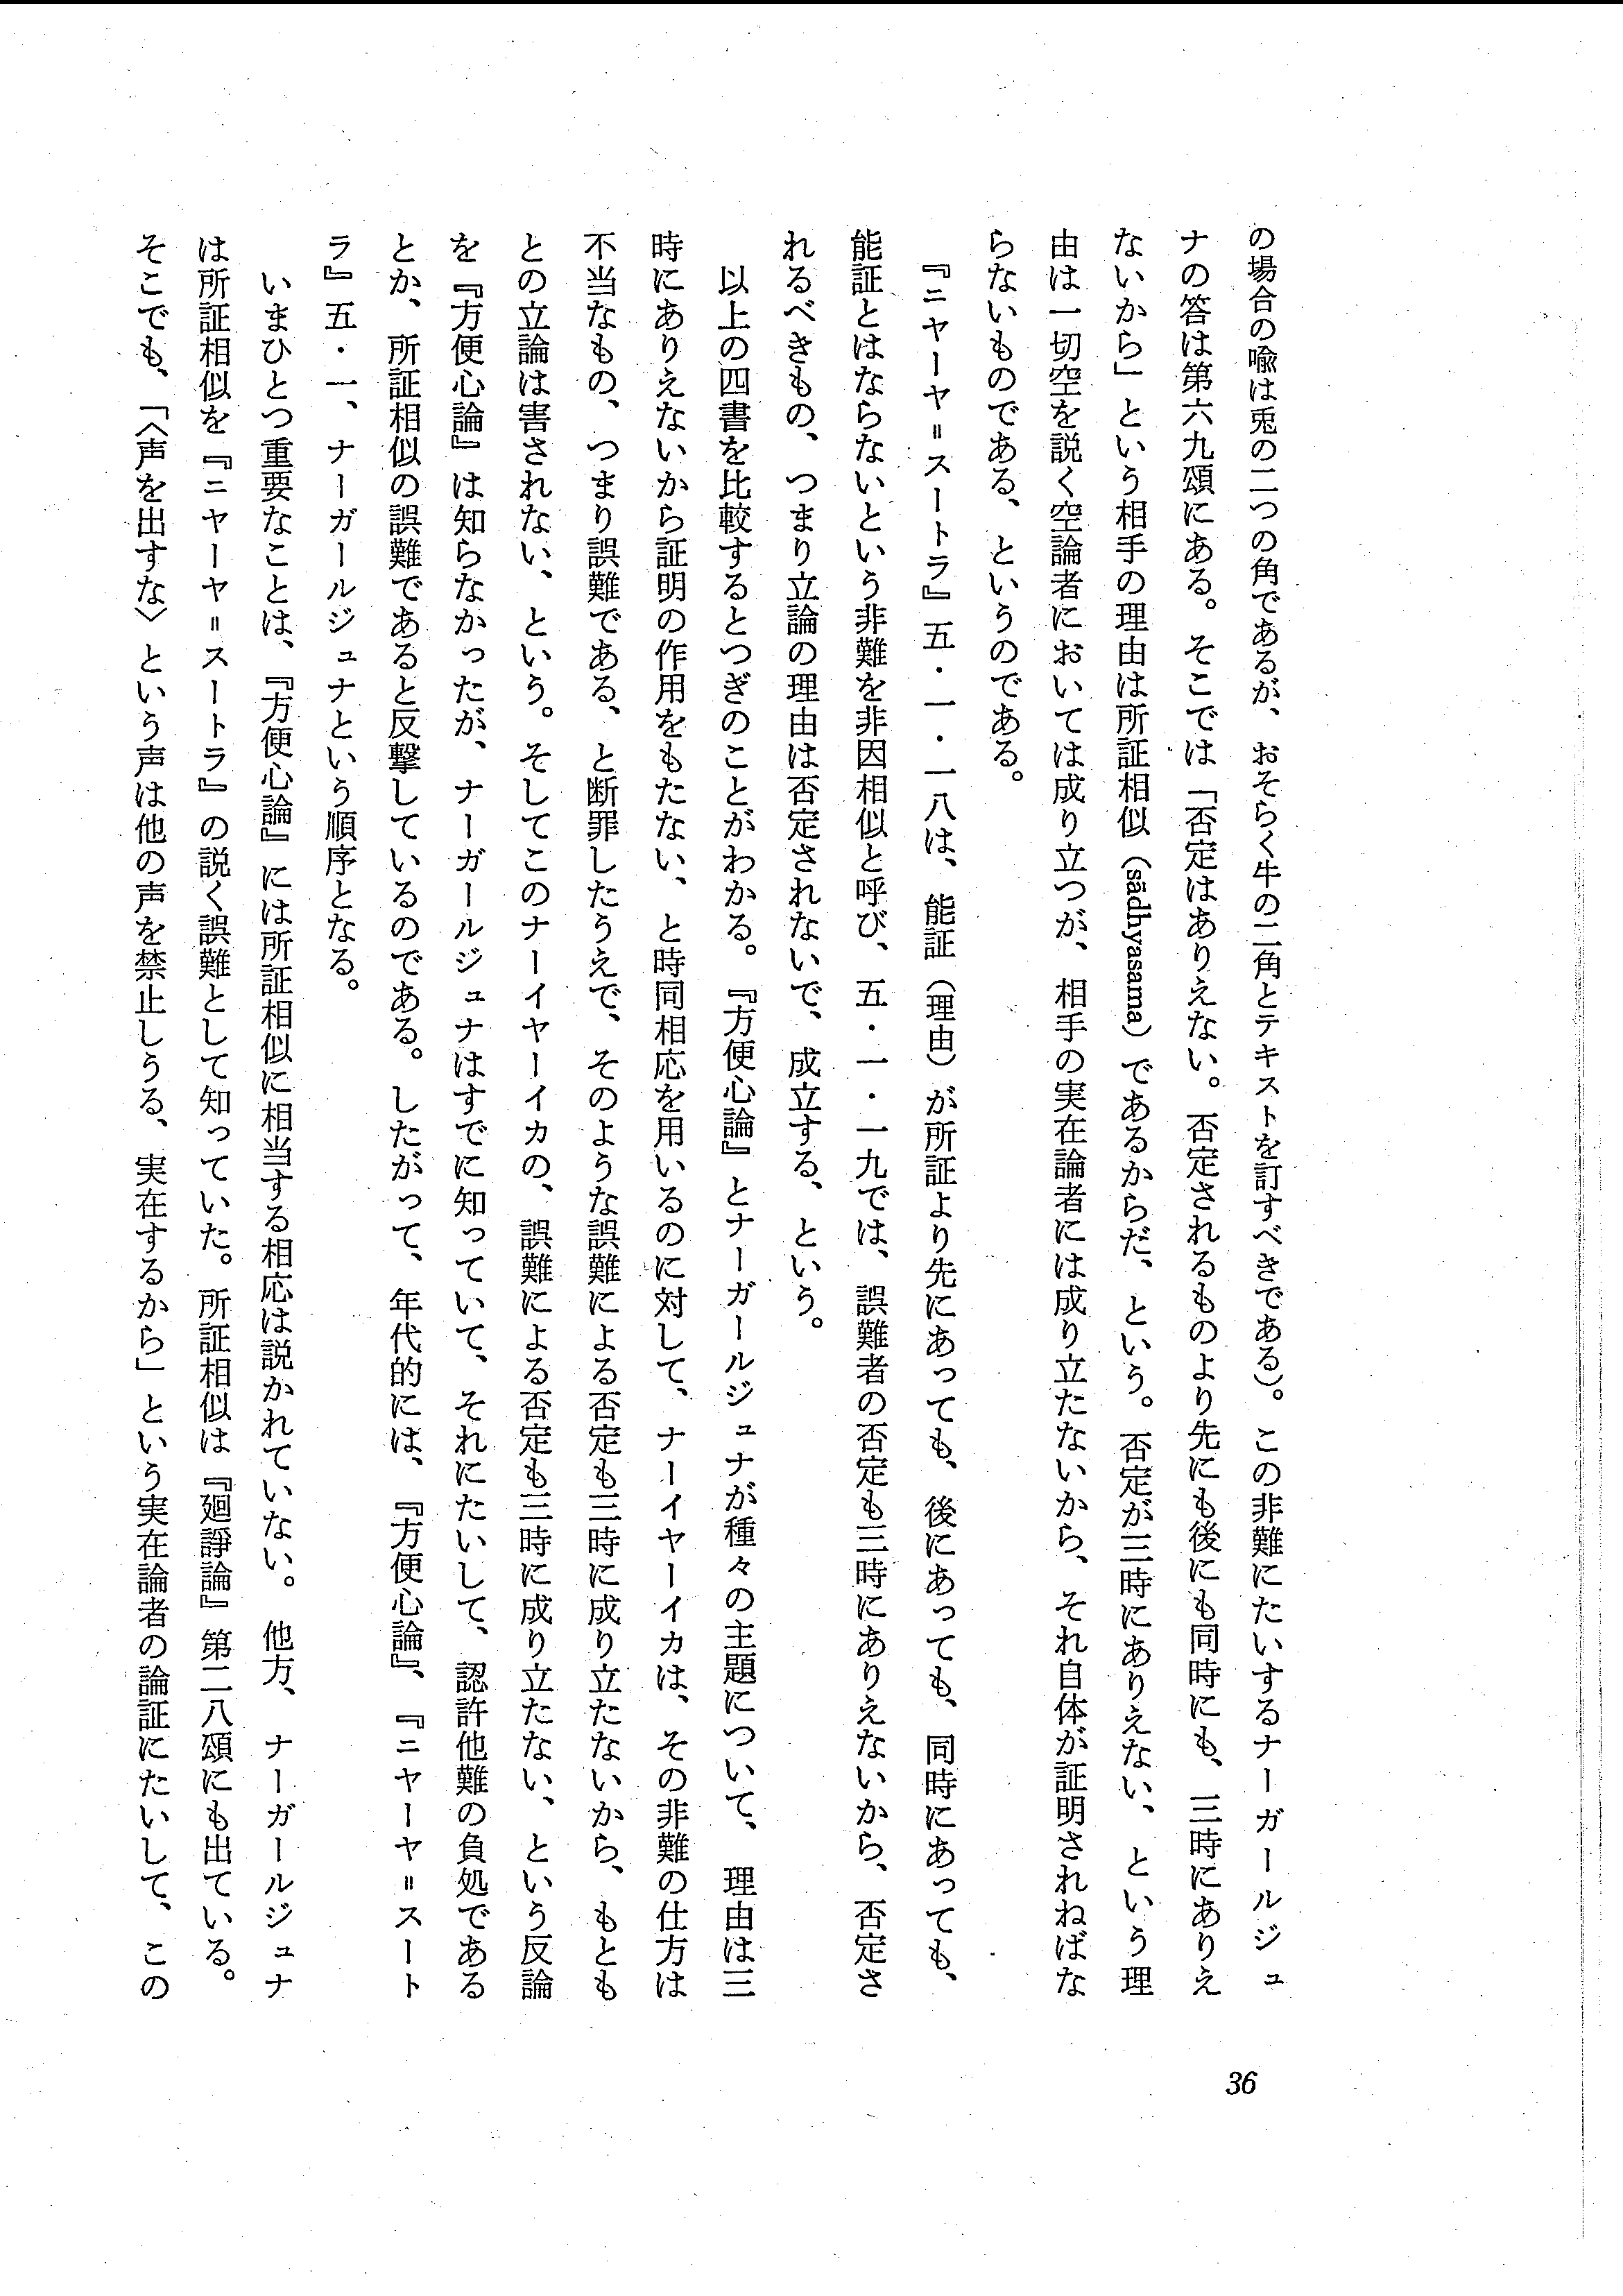 の場合の喩は兎の二つの角であるが、おそらく牛の二角とテキストを訂すべきである）。この非難にたいするナーガールジュ
ナの答は第六九頌にある。そこでは「否定はありえない。否定されるものより先にも後にも同時にも、三時にありえ
ないから」という相手の理由は所証相似（sādhyasama）であるからだ、という。否定が三時にありえない、という理
由は一切空を説く空論者においては成り立つが、相手の実在論者には成り立たないから、それ自体が証明されねばな
らないものである、というのである。
『ニヤーヤ＝スートラ』五・一・一八は、能証（理由）が所証より先にあっても、後にあっても、同時にあっても、
能証とはならないという非難を非因相似と呼び、五・一・一九では、誤難者の否定も三時にありえないから、否定さ
れるべきもの、つまり立論の理由は否定されないで、成立する、という。
以上の四書を比較するとつぎのことがわかる。『方便心論』とナーガールジュナが種々の主題について、理由は三
時にありえないから証明の作用をもたない、と時同相応を用いるのに対して、ナーイヤーイカは、その非難の仕方は
不当なもの、つまり誤難である、と断罪したうえで、そのような誤難による否定も三時に成り立たないから、もとも
との立論は害されない、という。そしてこのナーイヤーイカの、誤難による否定も三時に成り立たない、という反論
を『方便心論』は知らなかったが、ナーガールジュナはすでに知っていて、それにたいして、認許他難の負処である
とか、所証相似の誤難であると反撃しているのである。したがって、年代的には、『方便心論』、『ニヤーヤ＝スート
ラ』五・一、ナーガールジュナという順序となる。
いまひとつ重要なことは、『方便心論』には所証相似に相当する相応は説かれていない。他方、ナーガールジュナ
は所証相似を『ニヤーヤ＝スートラ』の説く誤難として知っていた。所証相似は『廻諍論』第二八頌にも出ている。
そこでも、「〈声を出すな〉という声は他の声を禁止しうる、実在するから」という実在論者の論証にたいして、この
36